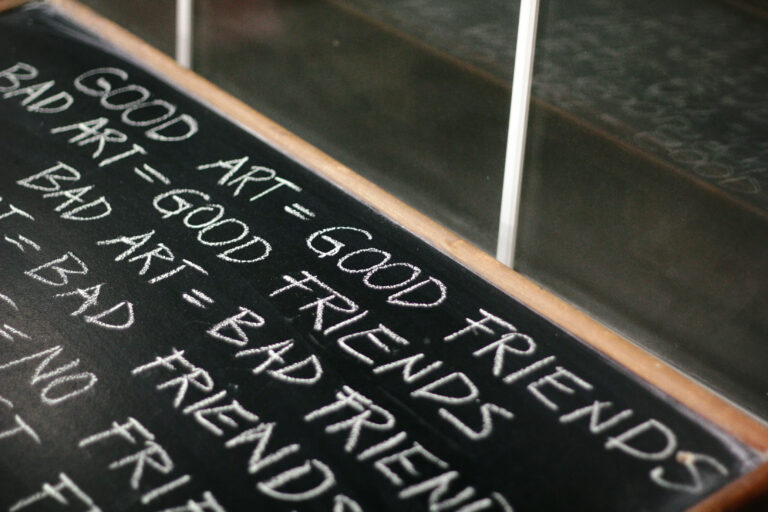 GOOD ART = GOOD FRIENDS
BAD ART = GOOD FRIENDS
BAD ART = BAD FRIEN
T = BAD FRIENDS
= NO FRI